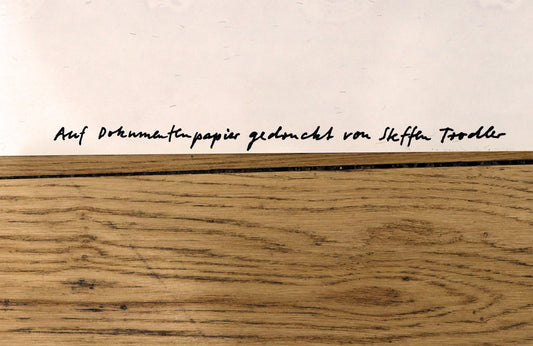 Auf Dokumentenpapier gedruckt von Steffen Trodler